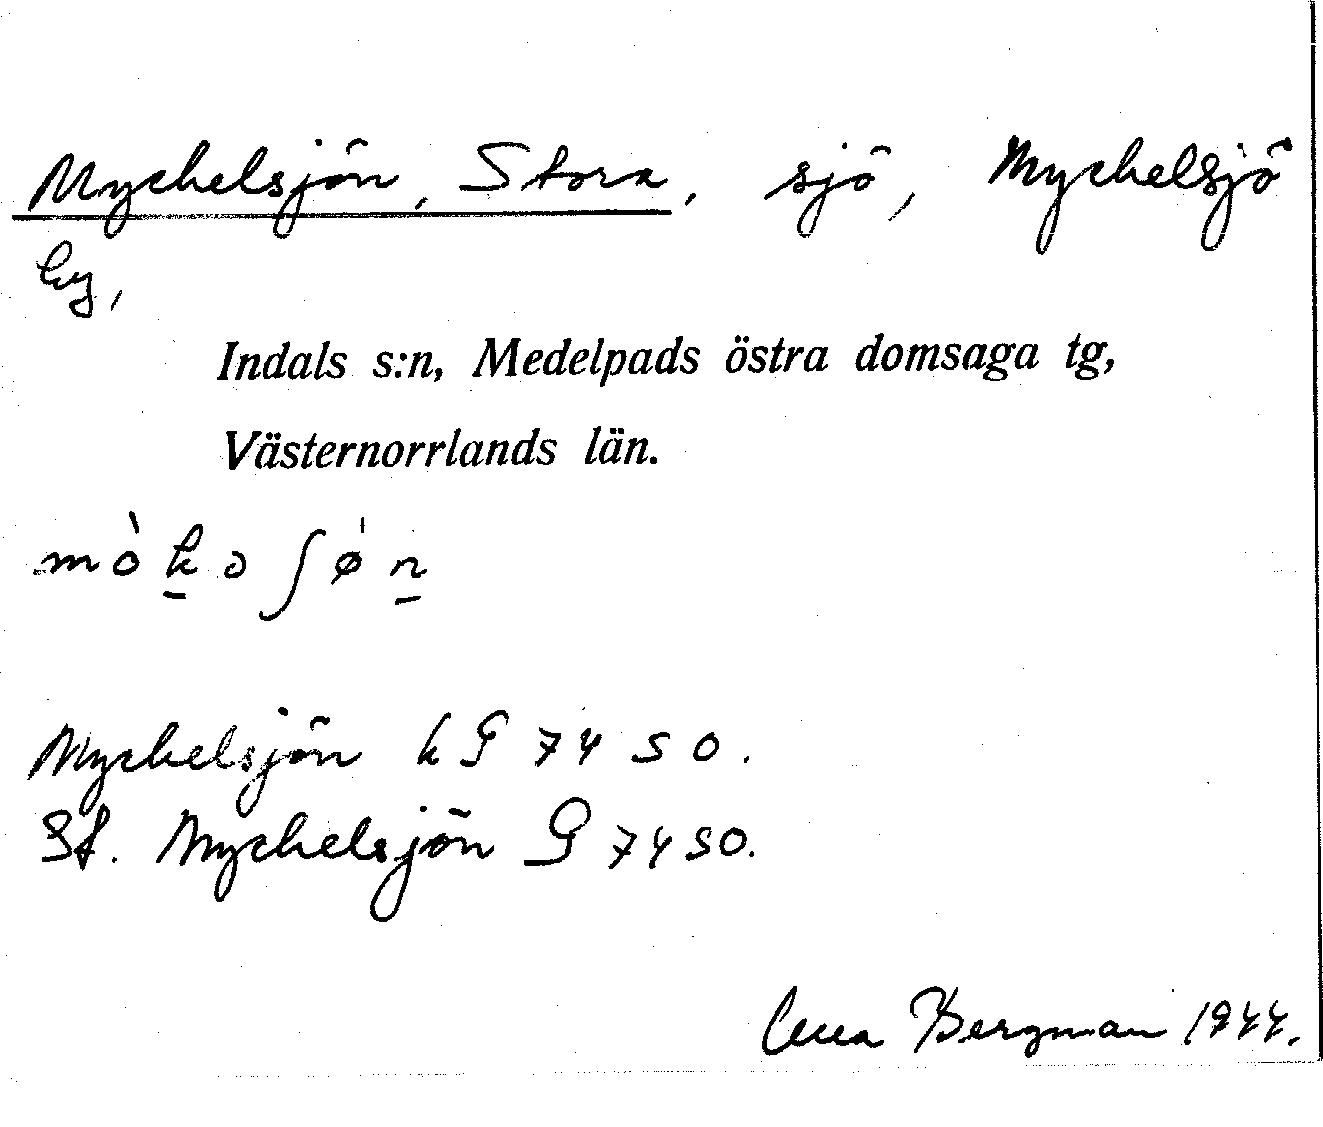 Myckelsjön, Stora, sjö, Myckelsjö
by,
Indals s:n, Medelpads östra domsaga tg,
Västernorrlands län.
mòk̲əʃø̍n̲
Myckelsjön k G 7450.
St. Myckelsjön G 7450.
Bergman 1944.